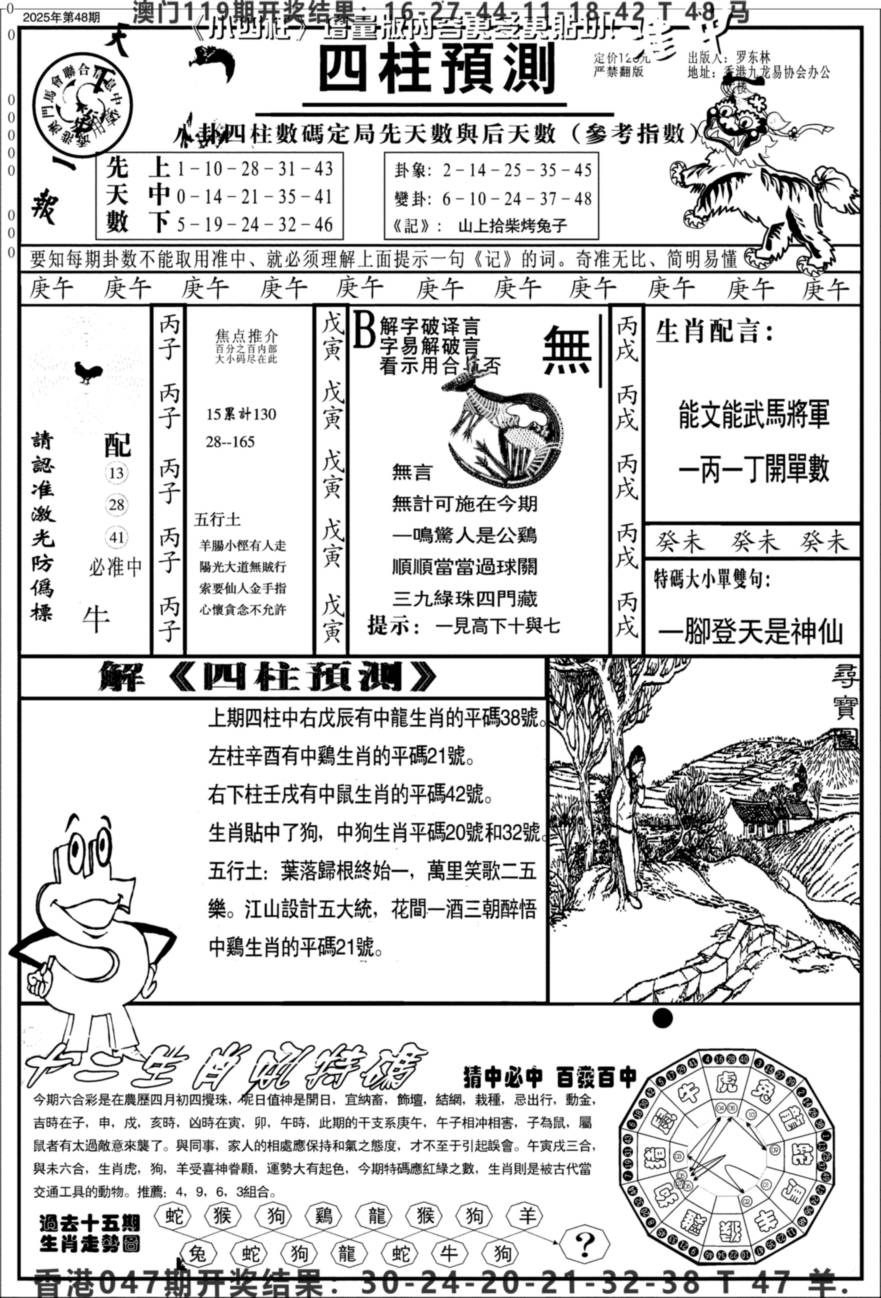 2025年第48期
澳门119期开奖结果：16-27-44-11-18-42 T 48 马
四柱預測
定价120元
严禁翻版
出版人：罗东林
地址：香港九龙易协会办公
天
一
報
八卦四柱數碼定局先天數與后天數（參考指數）
先 上 1-10-28-31-43
天 中 0-14-21-35-41
數 下 5-19-24-32-46
卦象: 2-14-25-35-45
變卦: 6-10-24-37-48
《記》: 山上拾柴烤兔子
要知每期卦数不能取用准中、就必须理解上面提示一句《记》的词。奇准无比、简明易懂
庚午 庚午 庚午 庚午 庚午 庚午 庚午 庚午 庚午 庚午 庚午
請認准激光防僞標
配
13
28
41
必准中
牛
丙子
丙子
丙子
丙子
丙子
焦点推介
百分之百内部
大小码尽在此
15累計130
28--165
五行土
羊腸小徑有人走
陽光大道無賊行
索要仙人金手指
心懷貪念不允許
戊寅
戊寅
戊寅
戊寅
戊寅
B 解字破译言
字易解破言
看示用合 否
無
無言
無計可施在今期
一鳴驚人是公鷄
順順當當過球關
三九綠珠四門藏
提示: 一見高下十與七
丙戌
丙戌
丙戌
丙戌
丙戌
生肖配言:
能文能武馬將軍
一丙一丁開單數
癸未 癸未 癸未
特碼大小單雙句:
一腳登天是神仙
解《四柱預測》
上期四柱中右戊辰有中龍生肖的平碼38號。
左柱辛酉有中鷄生肖的平碼21號。
右下柱壬戌有中鼠生肖的平碼42號。
生肖貼中了狗，中狗生肖平碼20號和32號。
五行土：葉落歸根終始一，萬里笑歌二五
樂。江山設計五大統，花間一酒三朝醉悟
中鷄生肖的平碼21號。
尋寶圖
猜中必中 百發百中
今期六合彩是在農歷四月初四攪珠，呢日值神是開日，宜納畜，飾壇，結網，栽種，忌出行，動金，
吉時在子，申，戌，亥時，凶時在寅，卯，午時，此期的干支系庚午，午子相冲相害，子為鼠，屬
鼠者有太過敵意來襲了。與同事，家人的相處應保持和氣之態度，才不至于引起誤會。午寅戌三合，
與未六合，生肖虎，狗，羊受喜神眷顧，運勢大有起色，今期特碼應紅綠之數，生肖則是被古代當
交通工具的動物。推薦：4，9，6，3組合。
過去十五期
生肖走勢圖
蛇 猴 狗 鷄 龍 猴 狗 羊
兔 蛇 狗 龍 蛇 牛 狗
?
香港047期开奖结果：30-24-20-21-32-38 T 47 羊.